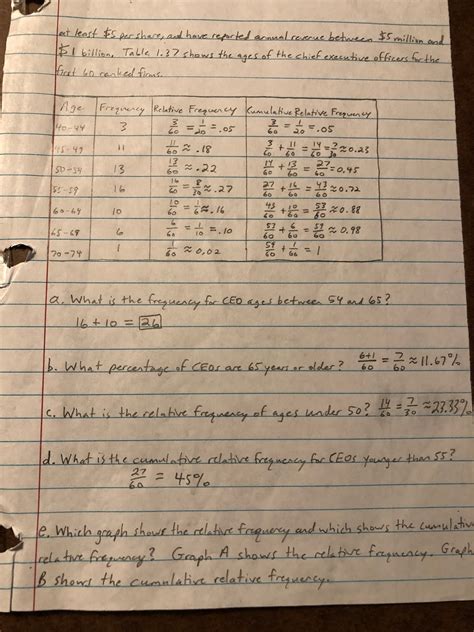 at least $5 per share, and have reported annual revenue between $5 million and
$1 billion. Table 1.37 shows the ages of the chief executive officers for the
first 60 ranked firms.
Age Frequency Relative Frequency Cumulative Relative Frequency
40-44 3 3/60 = 1/20 = .05 3/60 = 1/20 = .05
45-49 11 11/60 ≈ .18 3/60 + 11/60 = 14/60 = 7/30 ≈ 0.23
50-54 13 13/60 ≈ .22 14/60 + 13/60 = 27/60 = 0.45
55-59 16 16/60 = 8/30 ≈ .27 27/60 + 16/60 = 43/60 ≈ 0.72
60-64 10 10/60 = 1/6 ≈ .16 43/60 + 10/60 = 53/60 ≈ 0.88
65-69 6 6/60 = 1/10 = .10 53/60 + 6/60 = 59/60 ≈ 0.98
70-74 1 1/60 ≈ 0.02 59/60 + 1/60 = 1
a. What is the frequency for CEO ages between 54 and 65?
16 + 10 = 26
b. What percentage of CEOs are 65 years or older? 6+1/60 = 7/60 ≈ 11.67%
c. What is the relative frequency of ages under 50? 14/60 = 7/30 ≈ 23.33%
d. What is the cumulative relative frequency for CEOs younger than 55?
27/60 = 45%
e. Which graph shows the relative frequency and which shows the cumulative
relative frequency? Graph A shows the relative frequency. Graph
B shows the cumulative relative frequency.